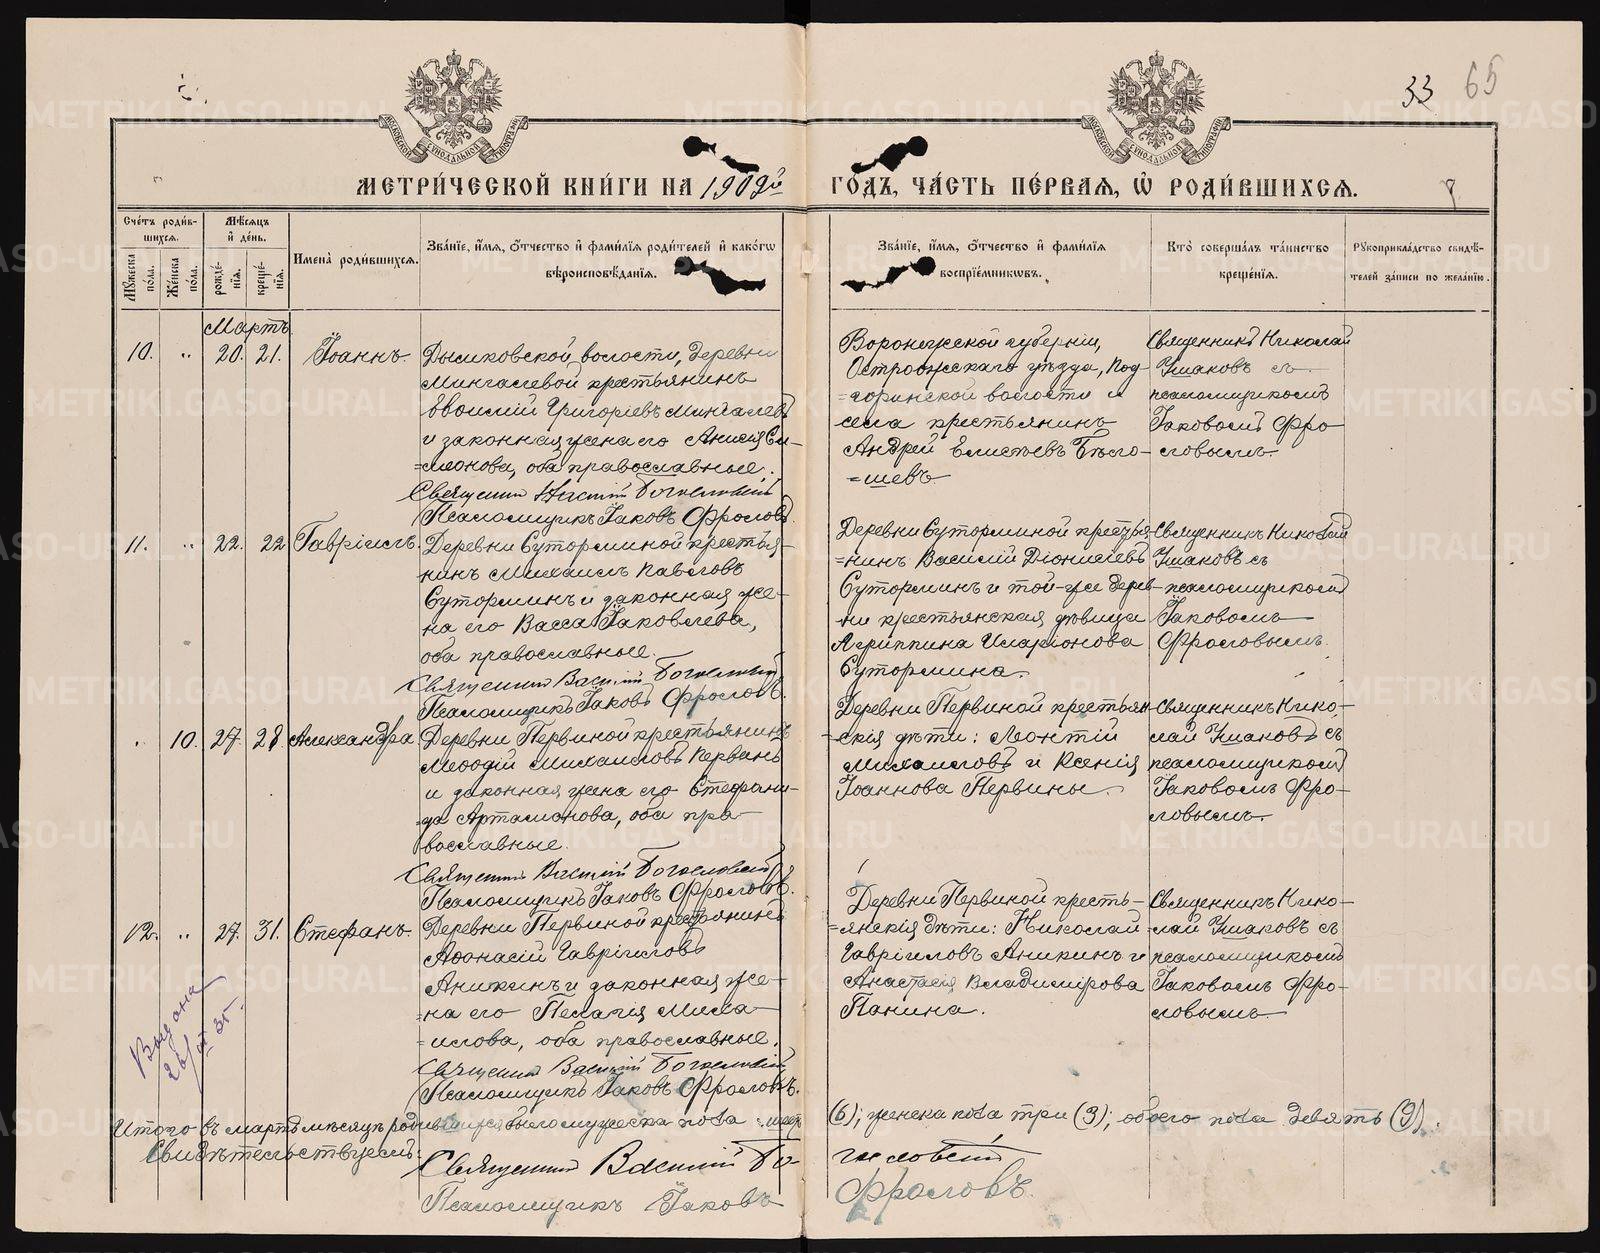 33 65
МОСКОВСКОЙ СУНОДАЛЬНОЙ ТИПОГРАФІИ
МОСКОВСКОЙ СУНОДАЛЬНОЙ ТИПОГРАФІИ
МЕТРИ́ЧЕСКОЙ КНИ́ГИ НА 1909й ГО́ДЪ, ЧА́СТЬ ПЕ́РВАѦ, Ѡ҆ РОДИ́ВШИХСѦ.
Сче́тъ роди́в-
шихсѧ.
Мѣ́сѧцъ
и҆ де́нь.
Мꙋ́жеска по́ла.
Же́нска по́ла.
рожде́-
нїѧ.
креще́-
нїѧ.
Имена̀ роди́вшихсѧ.
Зва́нїе, и҆́мѧ, ѻ҆́тчество и҆ фами́лїѧ роди́телей и҆ како́гѡ
вѣроисповѣ́данїѧ.
Зва́нїе, и҆́мѧ, ѻ҆́тчество и҆ фами́лїѧ
воспрїе́мникѡвъ.
Кто̀ соверша́лъ та́инство
креще́нїѧ.
Рꙋкоприкла́дство свидѣ́-
телей за́писи по жела́нїю.
Мартъ
10. „ 20. 21. Іоаннъ.
Дымковской волости, деревни
Мингалевой крестьянинъ
Григоріевъ Мингалевъ
и законная жена его Анисія Си-
=меонова, оба православные.
Священникъ Василій Богословскій
Псаломщикъ Іаковъ Фроловъ.
Воронежской губерніи,
Острожскаго уѣзда, Под-
=горинской волости и
села крестьянинъ
Андрей Елисѣевъ Бѣло-
=шевъ
Священникъ Николай
Ушаковъ съ
псаломщикомъ
Іаковомъ Фро-
ловымъ.
11. „ 22. 22 Гавріилъ.
Деревни Суторминой крестья-
нинъ Михаилъ Павловъ
Суторминъ и законная же-
на его Васса Іаковлева,
оба православные.
Священникъ Василій Богословскій
Псаломщикъ Іаковъ Фроловъ.
Деревни Суторминой крестья-
=нинъ Василій Діонисіевъ
Суторминъ и той-же дерев-
ни крестьянская дѣвица
Агриппина Иларіонова
Сутормина.
Священникъ Николай
Ушаковъ съ
псаломщикомъ
Іаковомъ
Фроловымъ.
10. 27. 28. Александра.
Деревни Первиной крестьянинъ
Меѳодій Михаиловъ Первинъ
и законная жена его Стефани-
=да Артамонова, оба пра-
вославные.
Священникъ Василій Богословскій
Псаломщикъ Іаковъ Фроловъ.
Деревни Первиной крестьян-
=скія дѣти: Леонтій
Михаиловъ и Ксенія
Іоаннова Первины.
Священникъ Нико-
лай Ушаковъ съ
псаломщикомъ
Іаковомъ Фро-
ловымъ.
12. „ 27. 31. Стефанъ.
Деревни Первиной крестьянинъ
Аѳонасій Гавріиловъ
Аникинъ и законная же-
=на его Пелагія Миха-
=илова, оба православные.
Священникъ Василій Богословскій
Псаломщикъ Іаковъ Фроловъ.
Деревни Первиной кресть-
=янскія дѣти: Николай
Гавріиловъ Аникинъ и
Анастасія Владимірова
Панина.
Священникъ Нико-
лай Ушаковъ съ
псаломщикомъ
Іаковомъ Фро-
ловымъ.
Выдана
Итого въ мартѣ мѣсяцѣ родившихся было мужеска пола шест (6); женска пола три (3); обоего пола девять (9).
Свидѣтельствуемъ:
Священникъ Василій Богословскій
Псаломщикъ Іаковъ Фроловъ.
METRIKI.GASO-URAL.RU